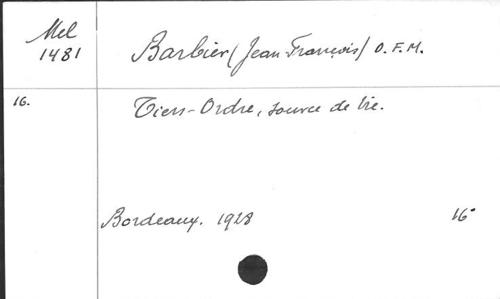 Mel
1481
Barbier (Jean François) O.F.M.
16.
Tiers-Ordre, source de vie.
Bordeaux. 1928
16°